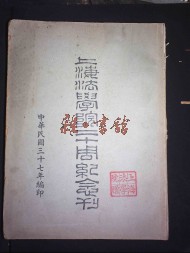 上海法學院二十周紀念刊
中華民國三十七年編印